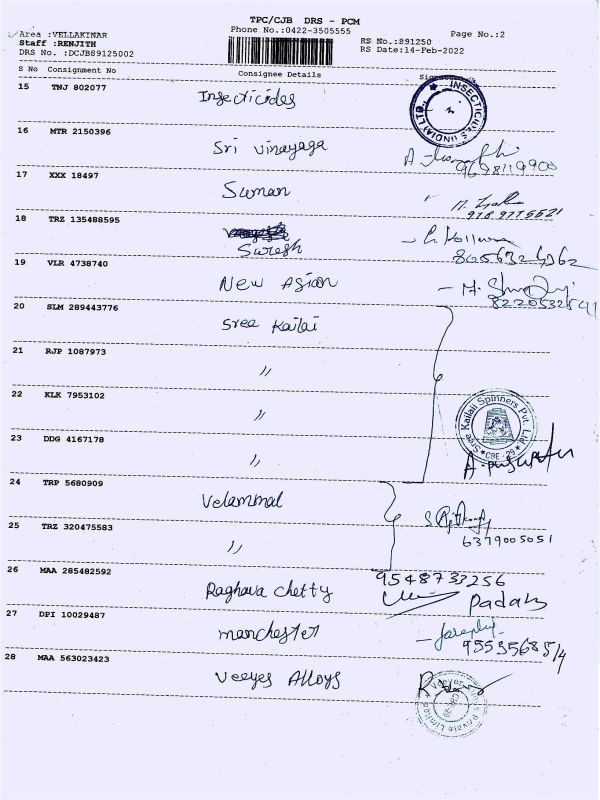 TPC/CJB DRS - PCM
Area :VELLAKINAR Phone No.:0422-3505555 Page No.:2
Staff :RENJITH RS No.:891250
DRS No. :DCJB89125002 RS Date:14-Feb-2022
S No Consignment No Consignee Details
15 TNJ 802077 Insecticides
INSECTICIDES (INDIA) LTD.
16 MTR 2150396 Sri Vinayaga
9698119900
17 XXX 18497 Suman
18 TRZ 135488595 Suresh
19 VLR 4738740 New Asian
20 SLM 289443776 Sree Kailai
21 RJP 1087973 "
22 KLK 7953102 "
Sree Kailaii Spinners Pvt. Ltd
CBE - 29
23 DDG 4167178 "
24 TRP 5680909 Velammal
25 TRZ 320475583 "
6379005051
26 MAA 285482592 Raghava Chetty
9548733256
27 DPI 10029487 Manchester
28 MAA 563023423 Veeyes Alloys